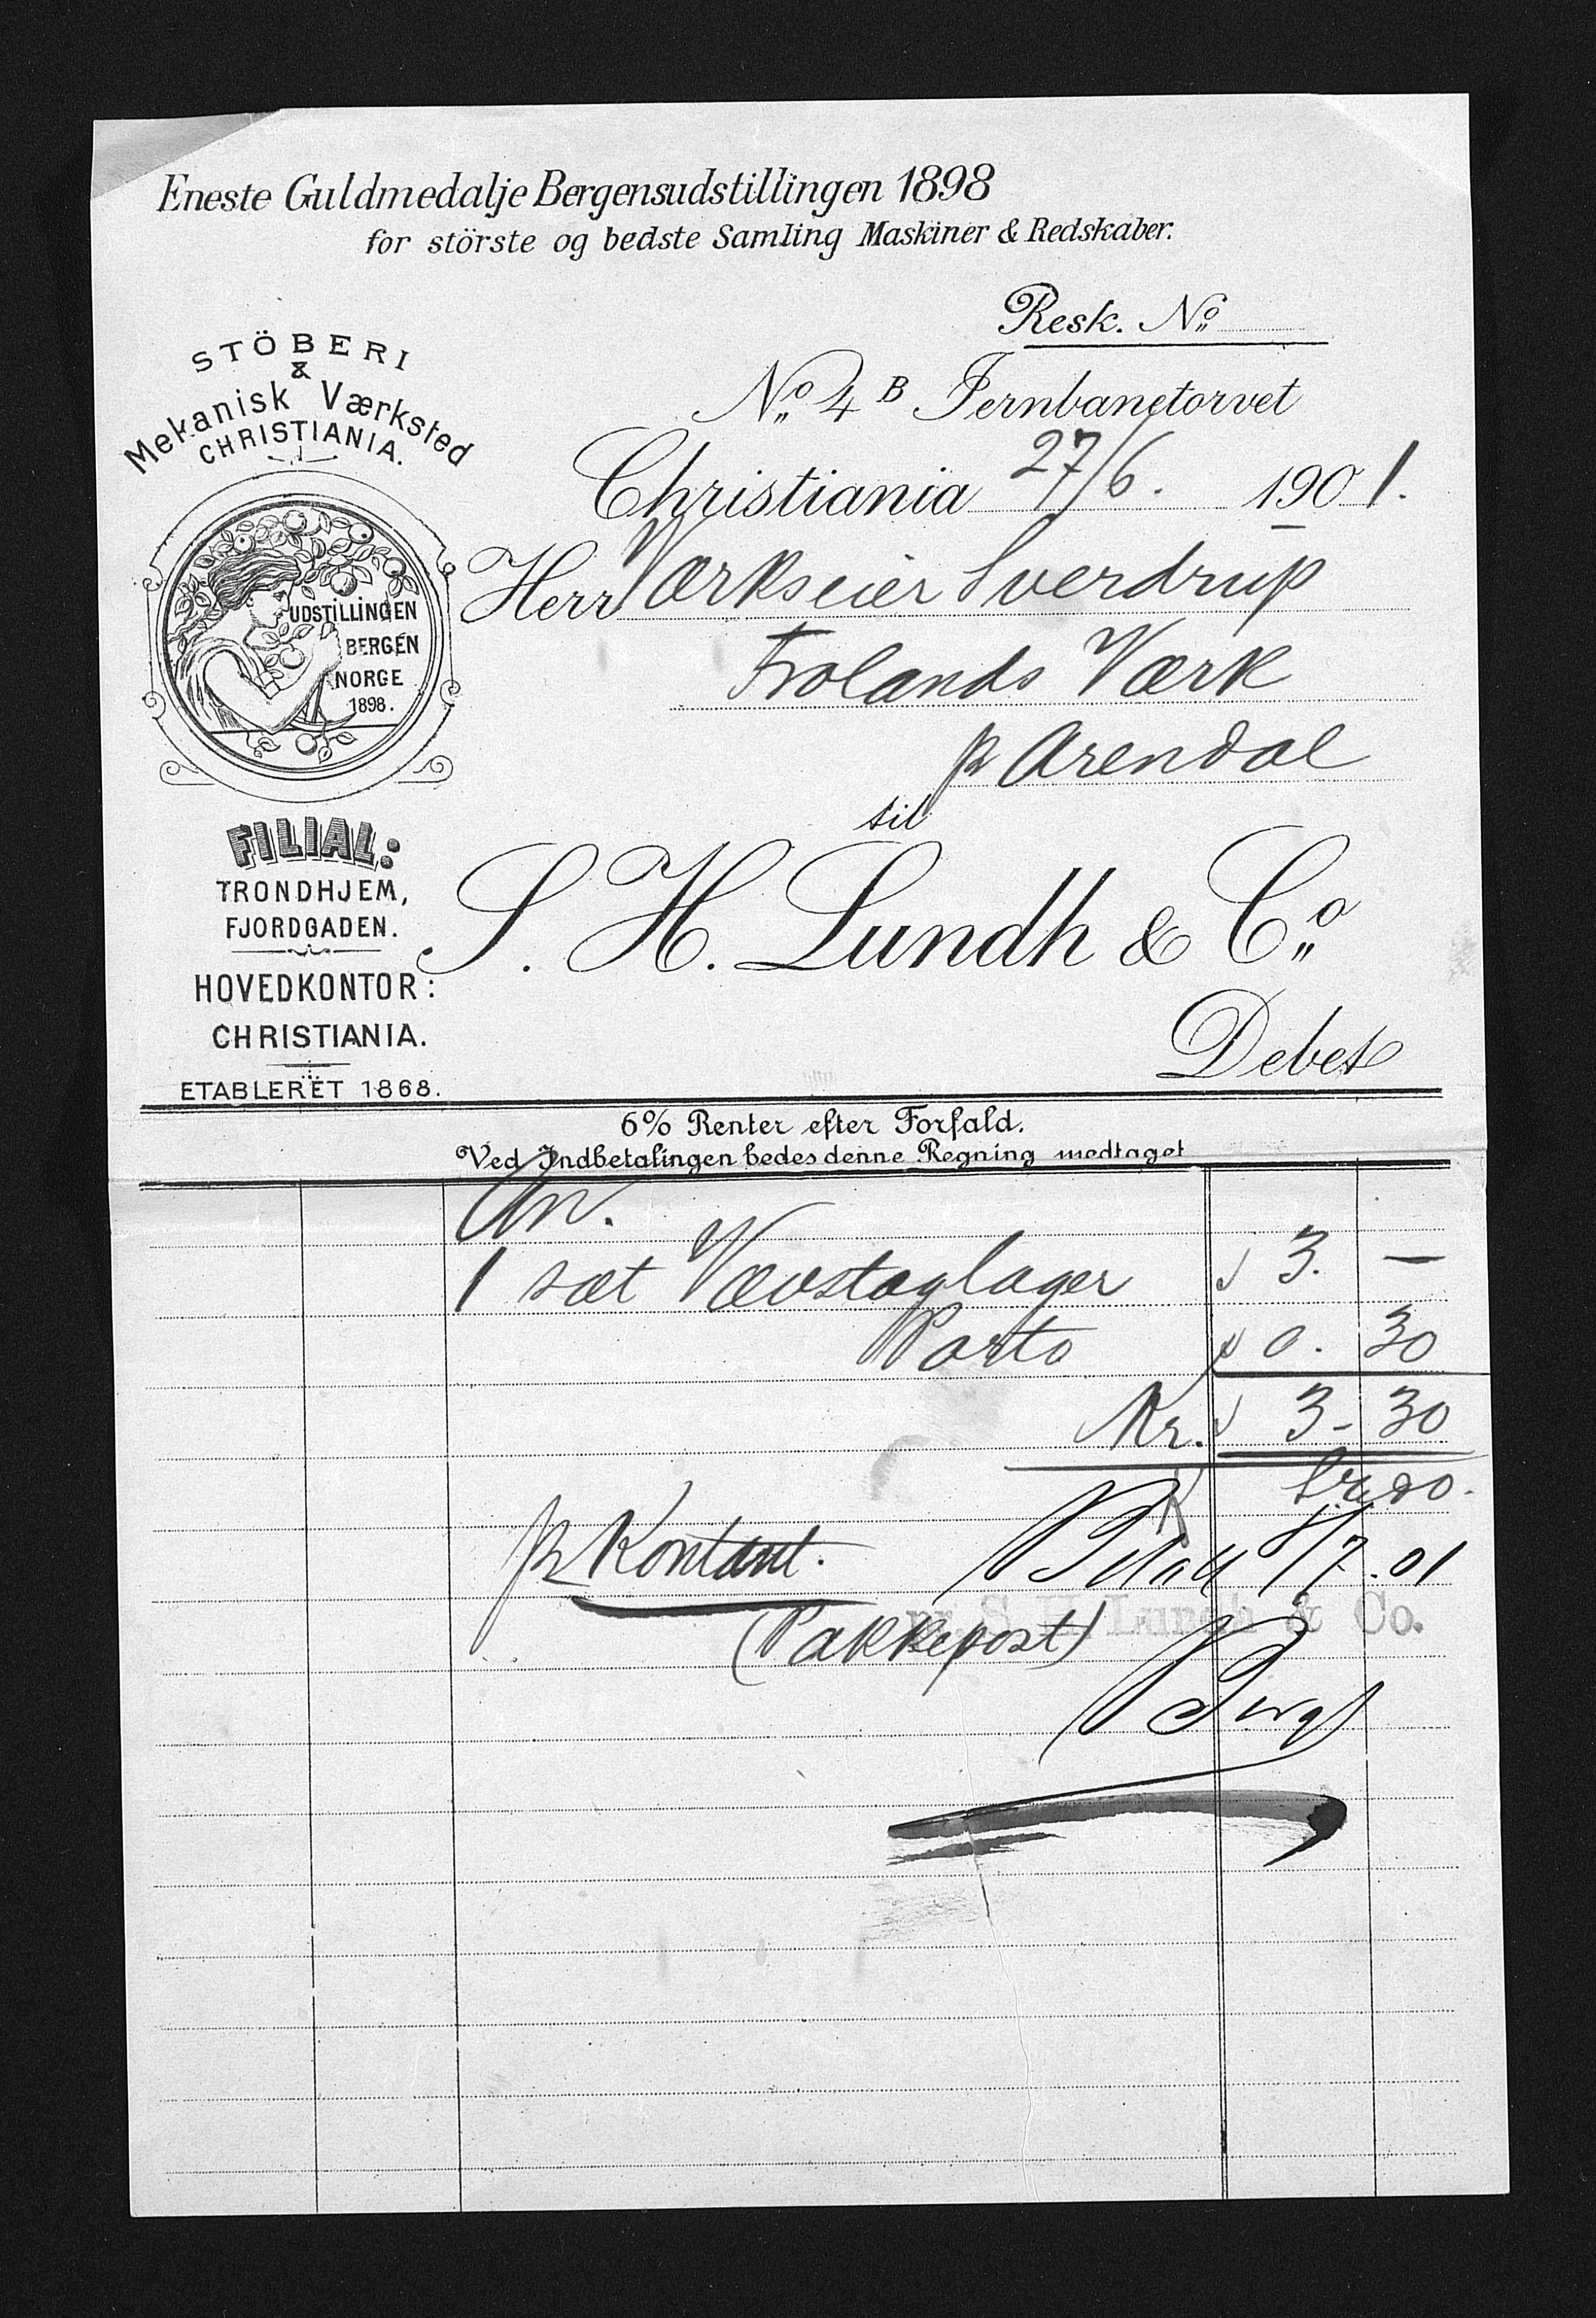 Eneste Guldmedalje Bergensudstillingen 1898
for störste og bedste Samling Maskiner & Redskaber.
Resk. No
STÖBERI
&
Mekanisk Værksted
CHRISTIANIA.
No 4 B Jernbanetorvet
Christiania 27/6. 1901.
Herr Værkseier Sverdrup
Frolands Værk
pr Arendal
UDSTILLINGEN
BERGEN
NORGE
1898.
til
S. H. Lundh & Co
FILIAL:
TRONDHJEM,
FJORDGADEN.
HOVEDKONTOR:
CHRISTIANIA.
ETABLERET 1868.
Debet
6% Renter efter Forfald.
Ved Indbetalingen bedes denne Regning medtaget
An.
1 sæt Vævstaglager 3. —
Porto 0. 30
Kr. 3-30
pr Kontant. Betalt /7.01
pr. S. H. Lundh & Co.
(Pakkepost)